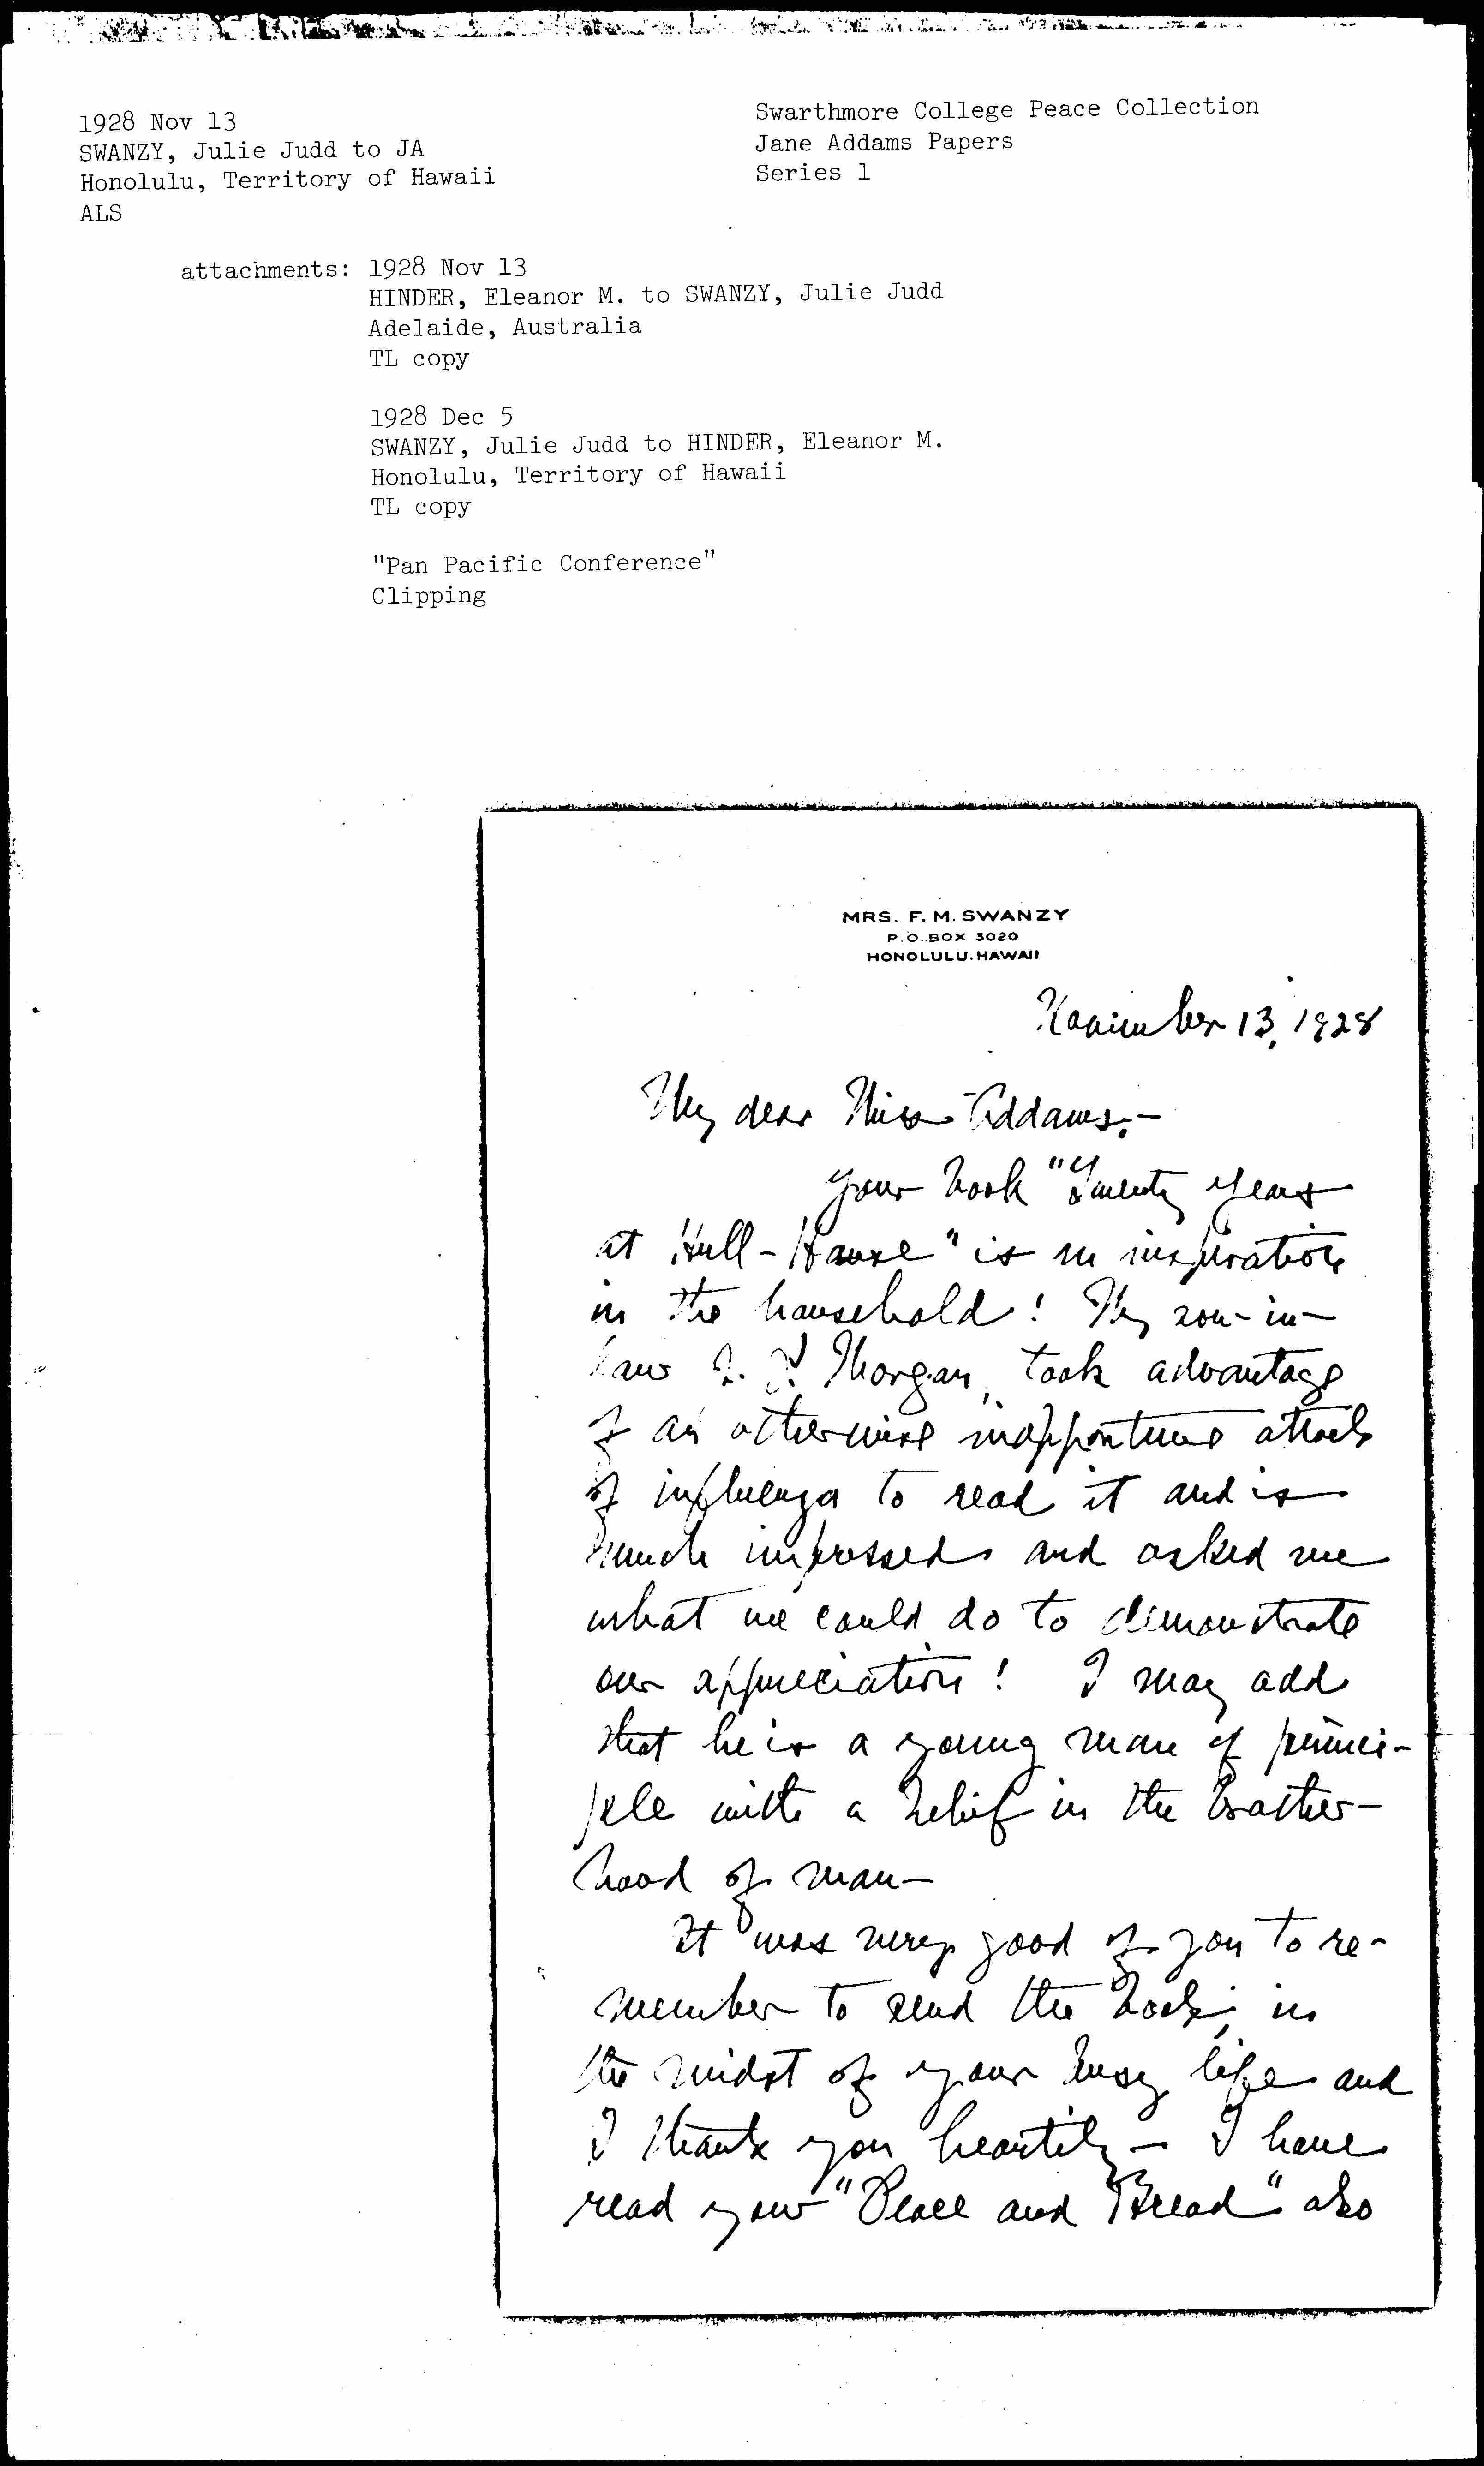 1928 Nov 13
SWANZY, Julie Judd to JA
Honolulu, Territory of Hawaii
ALS
Swarthmore College Peace Collection
Jane Addams Papers
Series 1
attachments: 1928 Nov 13
HINDER, Eleanor M. to SWANZY, Julie Judd
Adelaide, Australia
TL copy
1928 Dec 5
SWANZY, Julie Judd to HINDER, Eleanor M.
Honolulu, Territory of Hawaii
TL copy
"Pan Pacific Conference"
Clipping
MRS. F. M. SWANZY
P.O. BOX 3020
HONOLULU. HAWAII
November 13, 1928
My dear Miss Addams,-
Your book "Twenty Years
at Hull-House" is an inspiration
in the household! My son-in-
law Morgan, took advantage
of an otherwise inopportune attack
of influenza to read it and is
much impressed and asked me
what we could do to demonstrate
our appreciation! I may add
that he is a young man of princi-
ple with a belief in the brother-
hood of man-
It was very good of you to re-
member to send the book, in
the midst of your busy life and
I thank you heartily- I have
read your "Peace and Bread" also